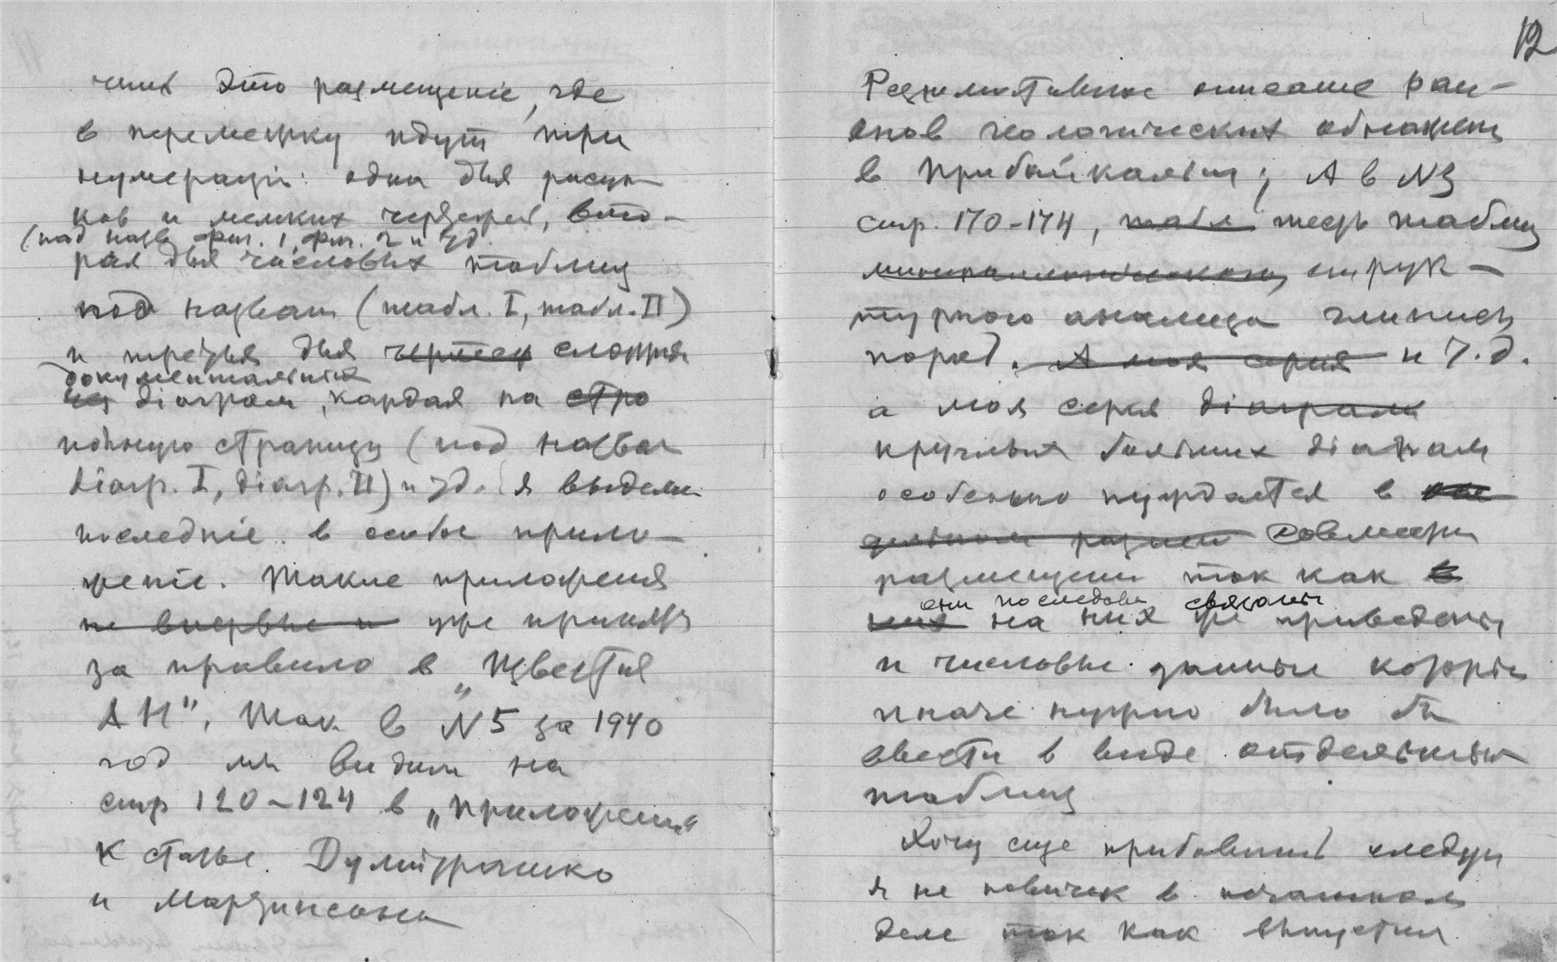 это размещеніе, где
в перемежку идут три
нумераціи: одна для рисун
ков и мелких чертежей, вто-
(под назв. фиг. 1, фиг. 2 и т.д.
рая для числовых таблиц
под назван (табл. I, табл. II)
и третья для чертеж сложных
документальных
діаграм, каждая на стро
полную страницу (под назван
діагр. I, діагр. II) и т.д. я выделил
последніе в особое прило-
женіе. Такие приложения
не впервые и уже приняты
за правило в „Известия
АН". Так в N 5 за 1940
год мы видим на
стр 120-124 в „приложении"
к статье Думитрашко
и Мартинсона
12
описание рай-
онов геологических обнажен
в Прибайкальи; А в N3
стр. 170-174, табл шесть таблиц
минералогического струк-
турного анализа глинист
пород. А моя серия и т.д.
а моя серия діаграм
круглых больших діаграм
особенно нуждается в
размещен совместн
размещении так как в
они последов связаны
них на них же приведены
и числовые данные
иначе нужно было бы
ввести в виде отдельных
таблиц
Хочу еще прибавить следую
я не новичек в печатном
деле так как выпустил